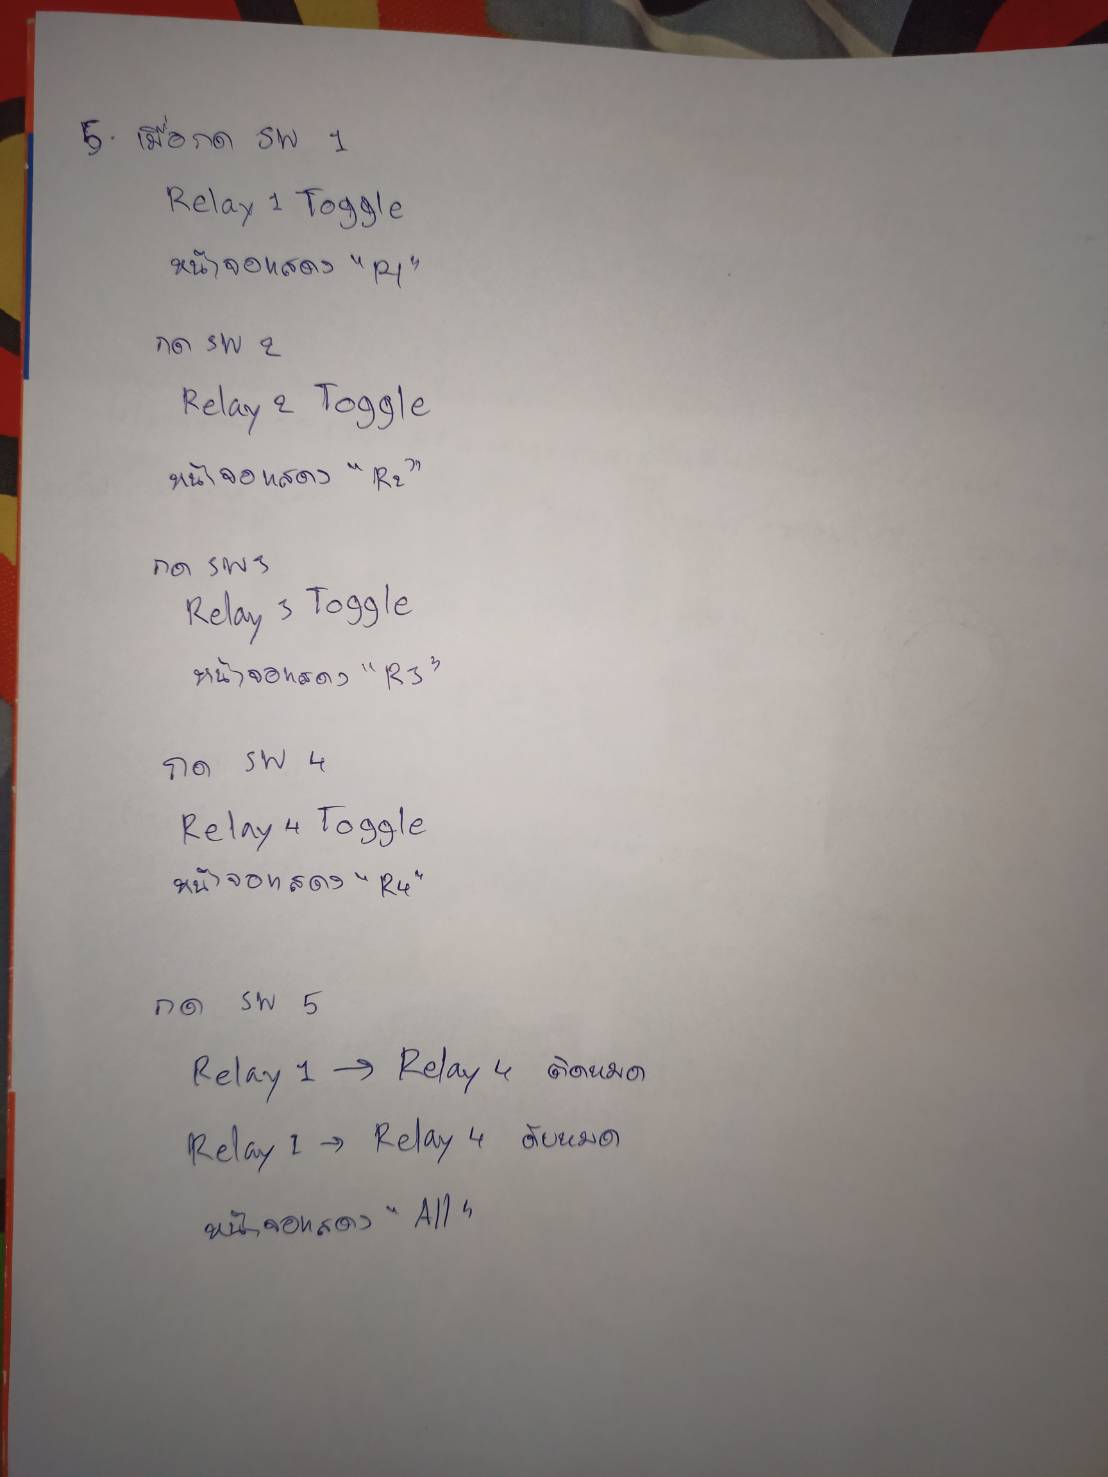 5. เมื่อกด SW 1
Relay 1 Toggle
หน้าจอแสดง "R1"
กด SW 2
Relay 2 Toggle
หน้าจอแสดง "R2"
กด SW3
Relay 3 Toggle
หน้าจอแสดง "R3"
กด SW 4
Relay 4 Toggle
หน้าจอแสดง "R4"
กด SW 5
Relay 1 → Relay 4 ติดหมด
Relay 1 → Relay 4 ดับหมด
หน้าจอแสดง "All"